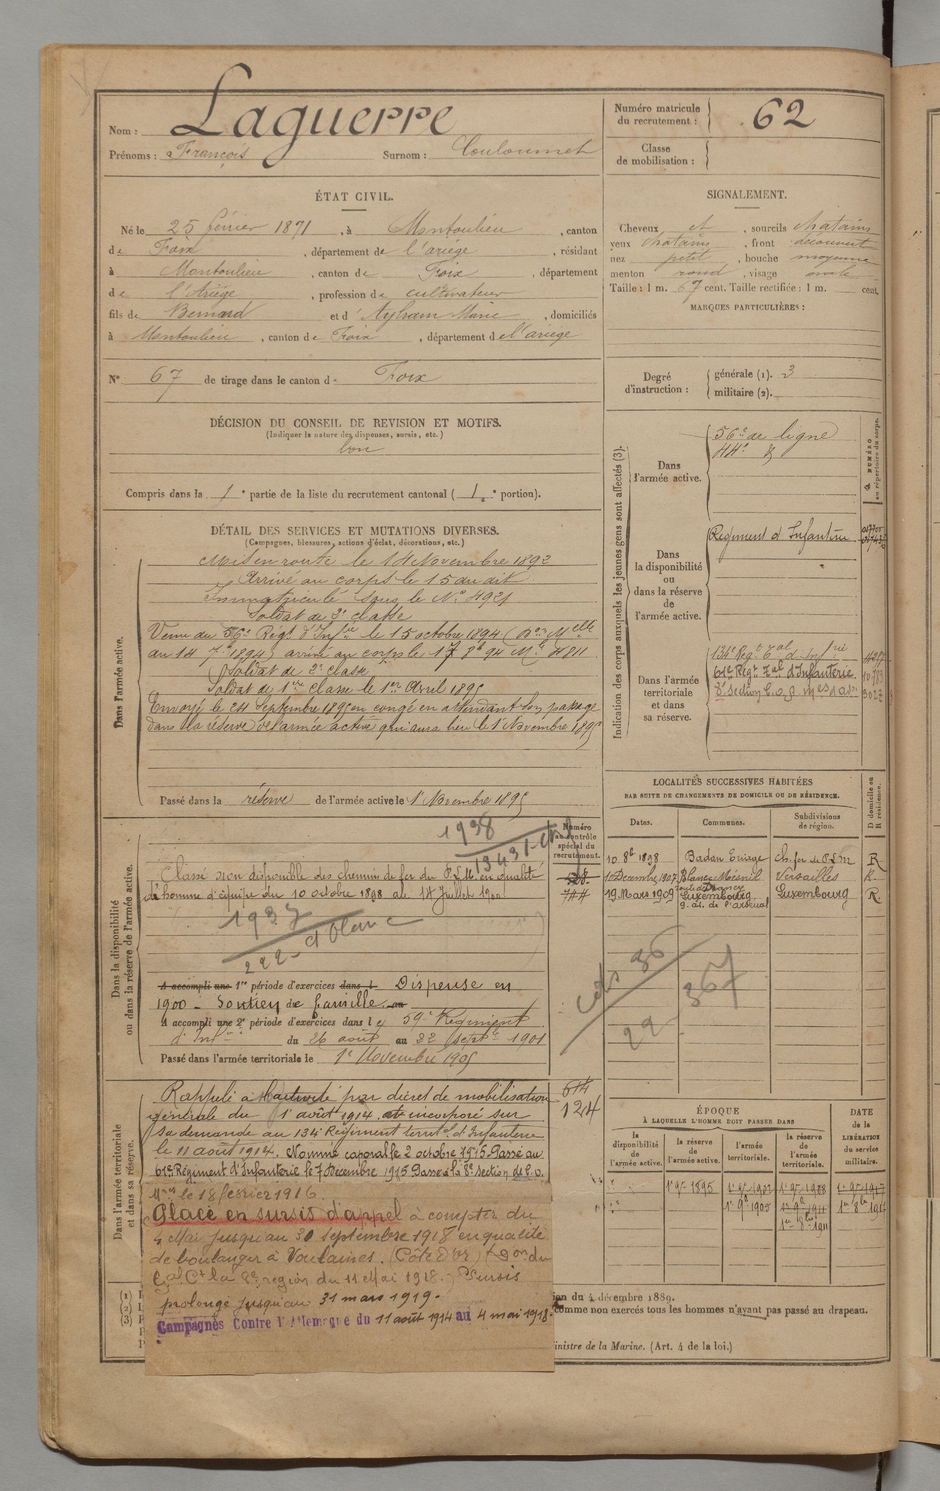 Nom : Laguerre
Prénoms : François Surnom : Couloumet
Numéro matricule du recrutement : 62
Classe de mobilisation :
ÉTAT CIVIL.
Né le 25 février 1871, à Montoulieu, canton
de Foix, département de l'ariége, résidant
à Montoulieu, canton de Foix, département
de l'Ariége, profession de cultivateur
fils de Bernard et d' Marie, domiciliés
à Montoulieu, canton de Foix, département de l'ariége
N° 67 de tirage dans le canton d Foix
SIGNALEMENT.
Cheveux et, sourcils chatains
yeux chatains, front découvert
nez petit, bouche moyenne
menton rond, visage ovale
Taille : 1 m. 67 cent. Taille rectifiée : 1 m. cent.
MARQUES PARTICULIÈRES :
Degré d'instruction : générale (1). 3
militaire (2).
DÉCISION DU CONSEIL DE REVISION ET MOTIFS.
(Indiquer la nature des dispenses, sursis, etc.)
bon
Compris dans la 1e partie de la liste du recrutement cantonal ( 1e portion).
DÉTAIL DES SERVICES ET MUTATIONS DIVERSES.
(Campagnes, blessures, actions d'éclat, décorations, etc.)
Dans l'armée active.
Mis en route le 14 Novembre 1892
Arrivé au corps le 15 du dit
Immatriculé sous le No 4921
Soldat de 2e classe
Venu du 56e Régt d'Infie le 15 octobre 1894
au 14 7bre 1894) arrivé au corps le 17 8b 94 Mle 4811
Soldat de 2e classe
Soldat de 1re classe le 1er Avril 1895
Envoyé le 24 Septembre 1895 en congé en attendant son passage
dans la réserve de l'armée active qui aura lieu le 1 Novembre 1895
Passé dans la réserve de l'armée active le 1 Novembre 1895
Indication des corps auxquels les jeunes gens sont affectés (3).
NUMÉRO au répertoire du corps.
Dans l'armée active.
56e de ligne
Dans la disponibilité ou dans la réserve de l'armée active.
Régiment d'Infanterie
Dans l'armée territoriale et dans sa réserve.
134e Régt Tal d'Infrie
61e Régt Tal d'Infanterie
LOCALITÉS SUCCESSIVES HABITÉES
PAR SUITE DE CHANGEMENTS DE DOMICILE OU DE RÉSIDENCE.
D domicile ou R résidence.
Dates. Communes. Subdivisions de région.
10 8b 1898 Badan Triage ch. fer de P.L.M R
10 Décembre 1907 Blancs Mesnil Versailles R
19 Mars 1909 Luxembourg Luxembourg R
Dans la disponibilité ou dans la réserve de l'armée active.
Numéro au contrôle spécial du recrutement.
1938
Classé non disponible des chemins de fer du P.L.M. en qualité
d'homme d'équipe du 10 octobre 1898 au 14 Juillet 1900
744
1937
222 - d blanc
A accompli une 1re période d'exercices dans l Dispensé en
1900 - Soutien de famille au
A accompli une 2e période d'exercices dans l e 59e Régiment
d'Infie du 26 août au 22 septbre 1901
Passé dans l'armée territoriale le 1e Novembre 1905
36
22 367
Dans l'armée territoriale et dans sa réserve.
Rappelé à l'activité par décret de mobilisation
générale du 1 août 1914, et incorporé sur
sa demande au 134e Régiment territal d'Infanterie
le 11 août 1914. Nommé caporal le 2 octobre 1915. Passé au
61e Régiment d'Infanterie le 7 Décembre 1915 Passé à la 8e section de C.O.
le 18 février 1916.
Placé en sursis d'appel à compter du
4 Mai jusqu'au 30 septembre 1918 en qualité
de boulanger à Voulaines. (Côte d'Or) (Don du
Gal Ct la 8e région du 11 Mai 1918.) Sursis
prolongé jusqu'au 31 mars 1919.
Campagnes Contre l'Allemagne du 11 août 1914 au 4 mai 1918.
124
ÉPOQUE
À LAQUELLE L'HOMME DOIT PASSER DANS
DATE de la LIBÉRATION du service militaire.
la disponibilité de l'armée active. la réserve de l'armée active. l'armée territoriale. la réserve de l'armée territoriale.
1e 9bre 1895
4 décembre 1889.
comme non exercés tous les hommes n'ayant pas passé au drapeau.
de la Marine. (Art. 4 de la loi.)